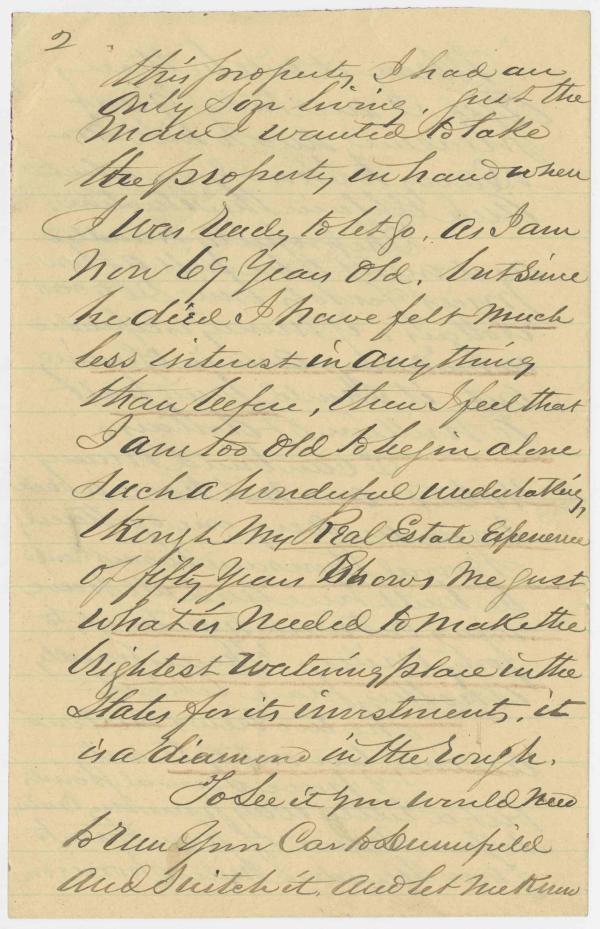 2
this property I had an
only Son living. just the
Man I wanted to take
the property in hand when
I was ready to let go. as I am
Now 69 Years old. but since
he died I have felt much
less interest in anything
than before, then I feel that
I am too old to begin alone
such a wonderful undertaking,
though My Real Estate Experience
of fifty Years Shows Me just
what is Needed to make the
brightest watering place in the
States for its investments. it
is a diamond in the rough.
To See it you would need
to run Your Car to Dunnfield
and Switch it. and let me know